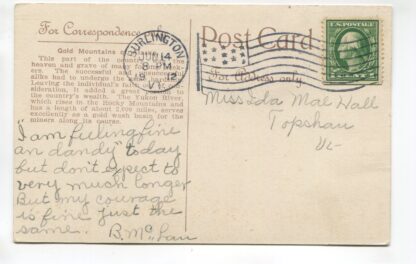 For Correspondence
Post Card
For Address only
BURLINGTON
JUN 14
8-PM
1912
VT.
U.S. POSTAGE
Gold Mountains
This part of the country
heaven and grave of many for
ers. The successful and
alike had to undergo the same
Leaving the individual's fate
sideration, it added a great
to the country's wealth. The Yukon River
which rises in the Rocky Mountains and
has a length of about 2,000 miles, serves
excellently as a gold wash basin for the
miners along its course.
Miss Ida Mae Hall
Topsham
Vt-
"I am feeling fine
an dandy" today
but don't expect to
very much longer
But my courage
is fine just the
same. B. Mc